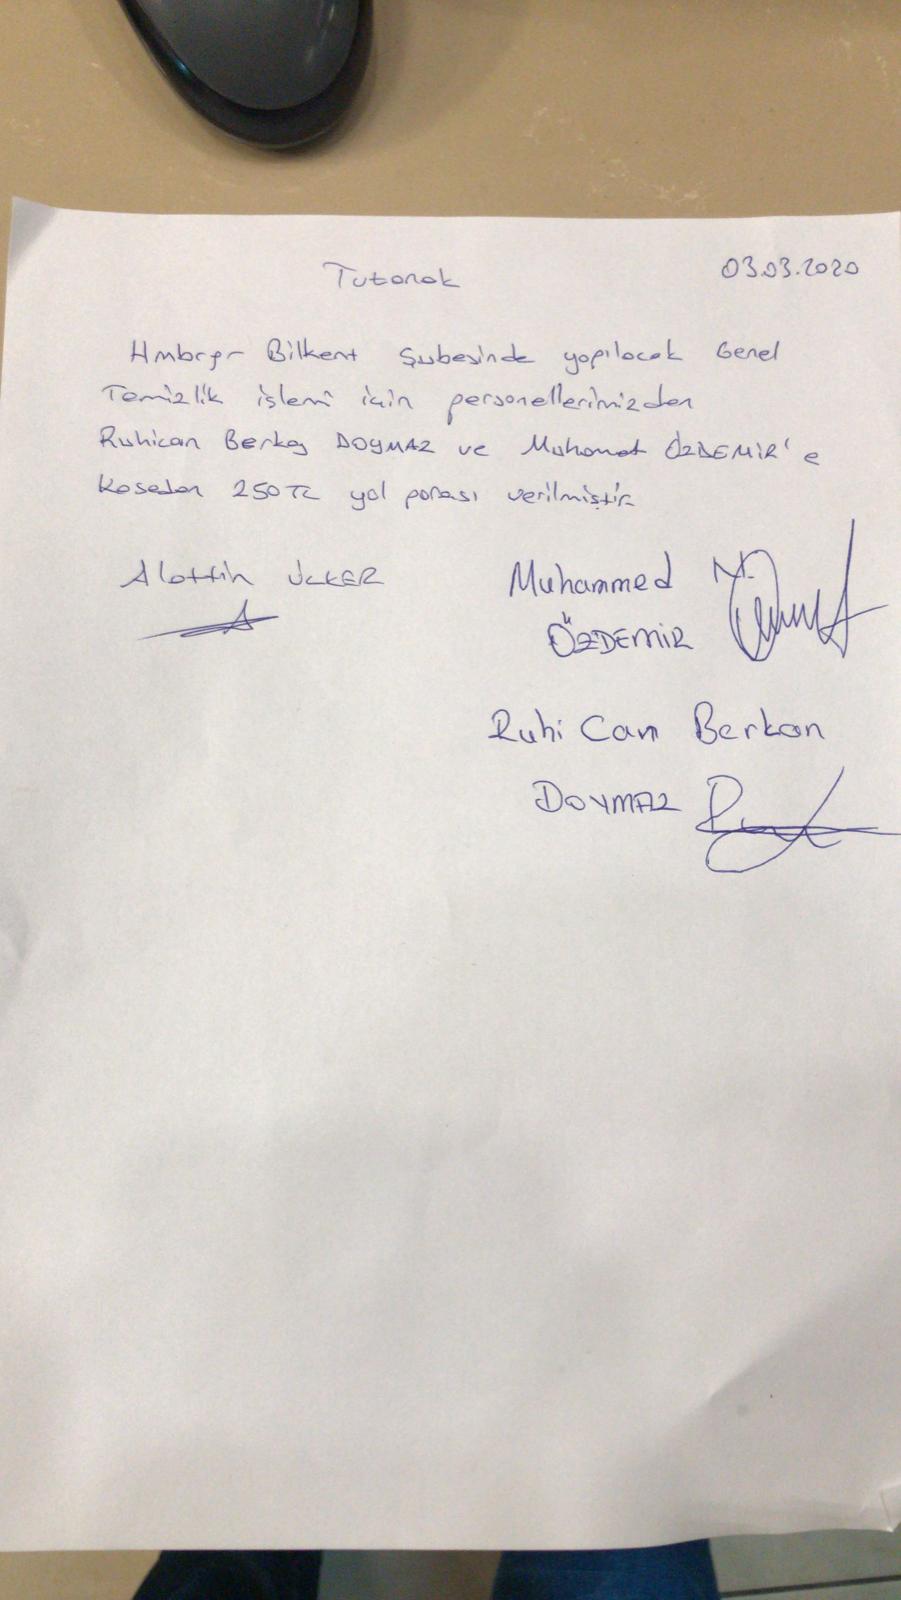 Tutanak 03.03.2020
Hmbrgr Bilkent Şubesinde yapılacak Genel
Temizlik işlemi için personellerimizden
Ruhican Berkay DOYMAZ ve Muhamet ÖZDEMİR'e
Kasadan 250 TL yol parası verilmiştir.
Alattin ÜLKER
Muhammed
ÖZDEMİR
Ruhi Can Berkan
DOYMAZ